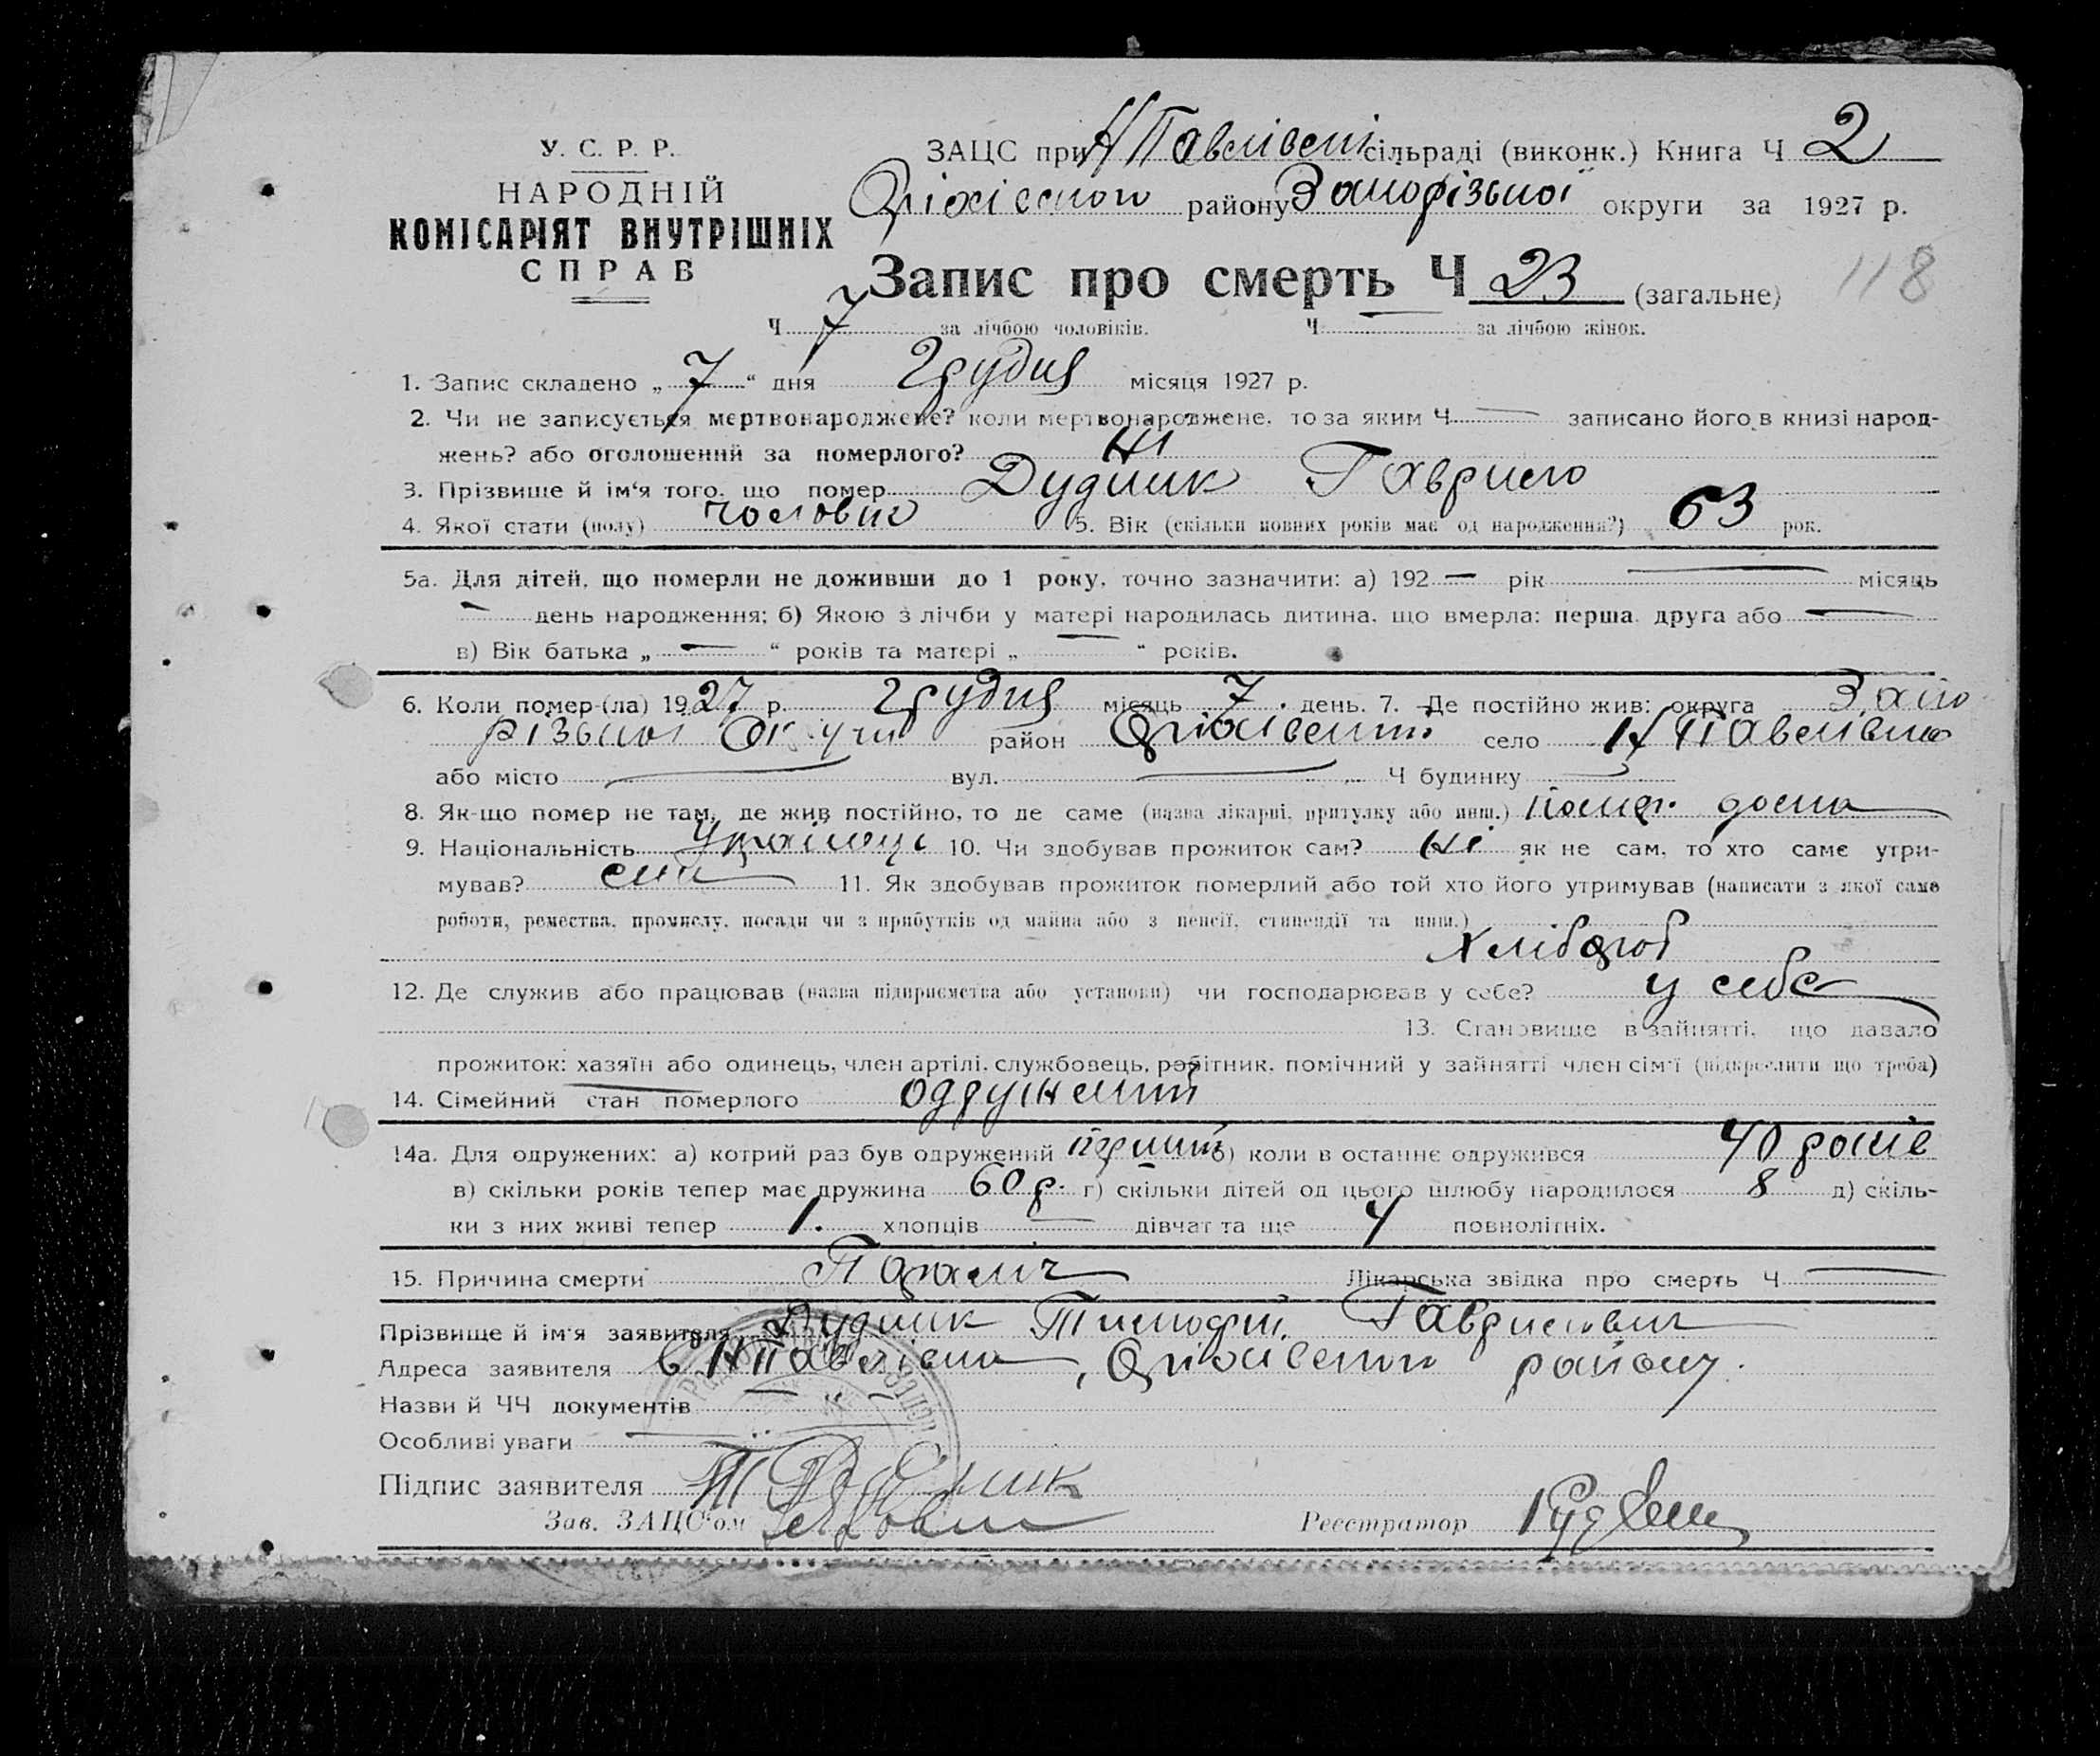 У. С. Р. Р.
НАРОДНІЙ
КОМІСАРІЯТ ВНУТРІШНІХ
СПРАВ
ЗАЦС при Н Павлівскі сільраді (виконк.) Книга Ч 2
Оріхівского району Запорізької округи за 1927 р.
Запис про смерть Ч 23 (загальне)
118
Ч 7 за лічбою чоловіків. Ч — за лічбою жінок.
1. Запис складено „ 7 “ дня Грудня місяця 1927 р.
2. Чи не записується мертвонароджене? коли мертвонароджене, то за яким Ч — записано його в книзі народ-
жень? або оголошений за померлого? Ні
3. Прізвище й ім'я того, що помер Дудник Гаврило
4. Якої стати (полу) чоловік 5. Вік (скільки повних років має од народження?) 63 рок.
5а. Для дітей, що померли не доживши до 1 року, точно зазначити: а) 192 — рік — місяць
— день народження; б) Якою з лічби у матері народилась дитина, що вмерла: перша друга або —
в) Вік батька „ — “ років та матері „ — “ років.
6. Коли помер-(ла) 1927 р. Грудня місяць 7 день. 7. Де постійно жив: округа Запо
різької Округи район Оріхівський село Н Павлівка
або місто — вул. — Ч будинку —
8. Як-що помер не там, де жив постійно, то де саме (назва лікарні, притулку або инш.) помер дома
9. Національність Українец 10. Чи здобував прожиток сам? Ні як не сам, то хто саме утри-
мував? син 11. Як здобував прожиток померлий або той хто його утримував (написати з якої саме
роботи, ремества, промислу, посади чи з прибутків од майна або з пенсії, стипендії та инш.)
Хлібороб
12. Де служив або працював (назва підприємства або установи) чи господарював у себе? у себе
13. Становище в зайнятті, що давало
прожиток: хазяїн або одинець, член артілі, службовець, робітник, помічний у зайнятті член сім'ї (підкреслити що треба)
14. Сімейний стан померлого одружений
14а. Для одружених: а) котрий раз був одружений перший б) коли в останнє одружився 40 років
в) скільки років тепер має дружина 60 р. г) скільки дітей од цього шлюбу народилося 8 д) скіль-
ки з них живі тепер 1. хлопців — дівчат та ще 4 повнолітніх.
15. Причина смерти Параліч Лікарська звідка про смерть Ч —
Прізвище й ім'я заявителя Дудник Тимофій Гаврилович
Адреса заявителя с Н Павлівка, Оріхівского району.
Назви й ЧЧ документів
Особливі уваги
Підпис заявителя Т Дудник
Зав. ЗАЦС'ом Реєстратор